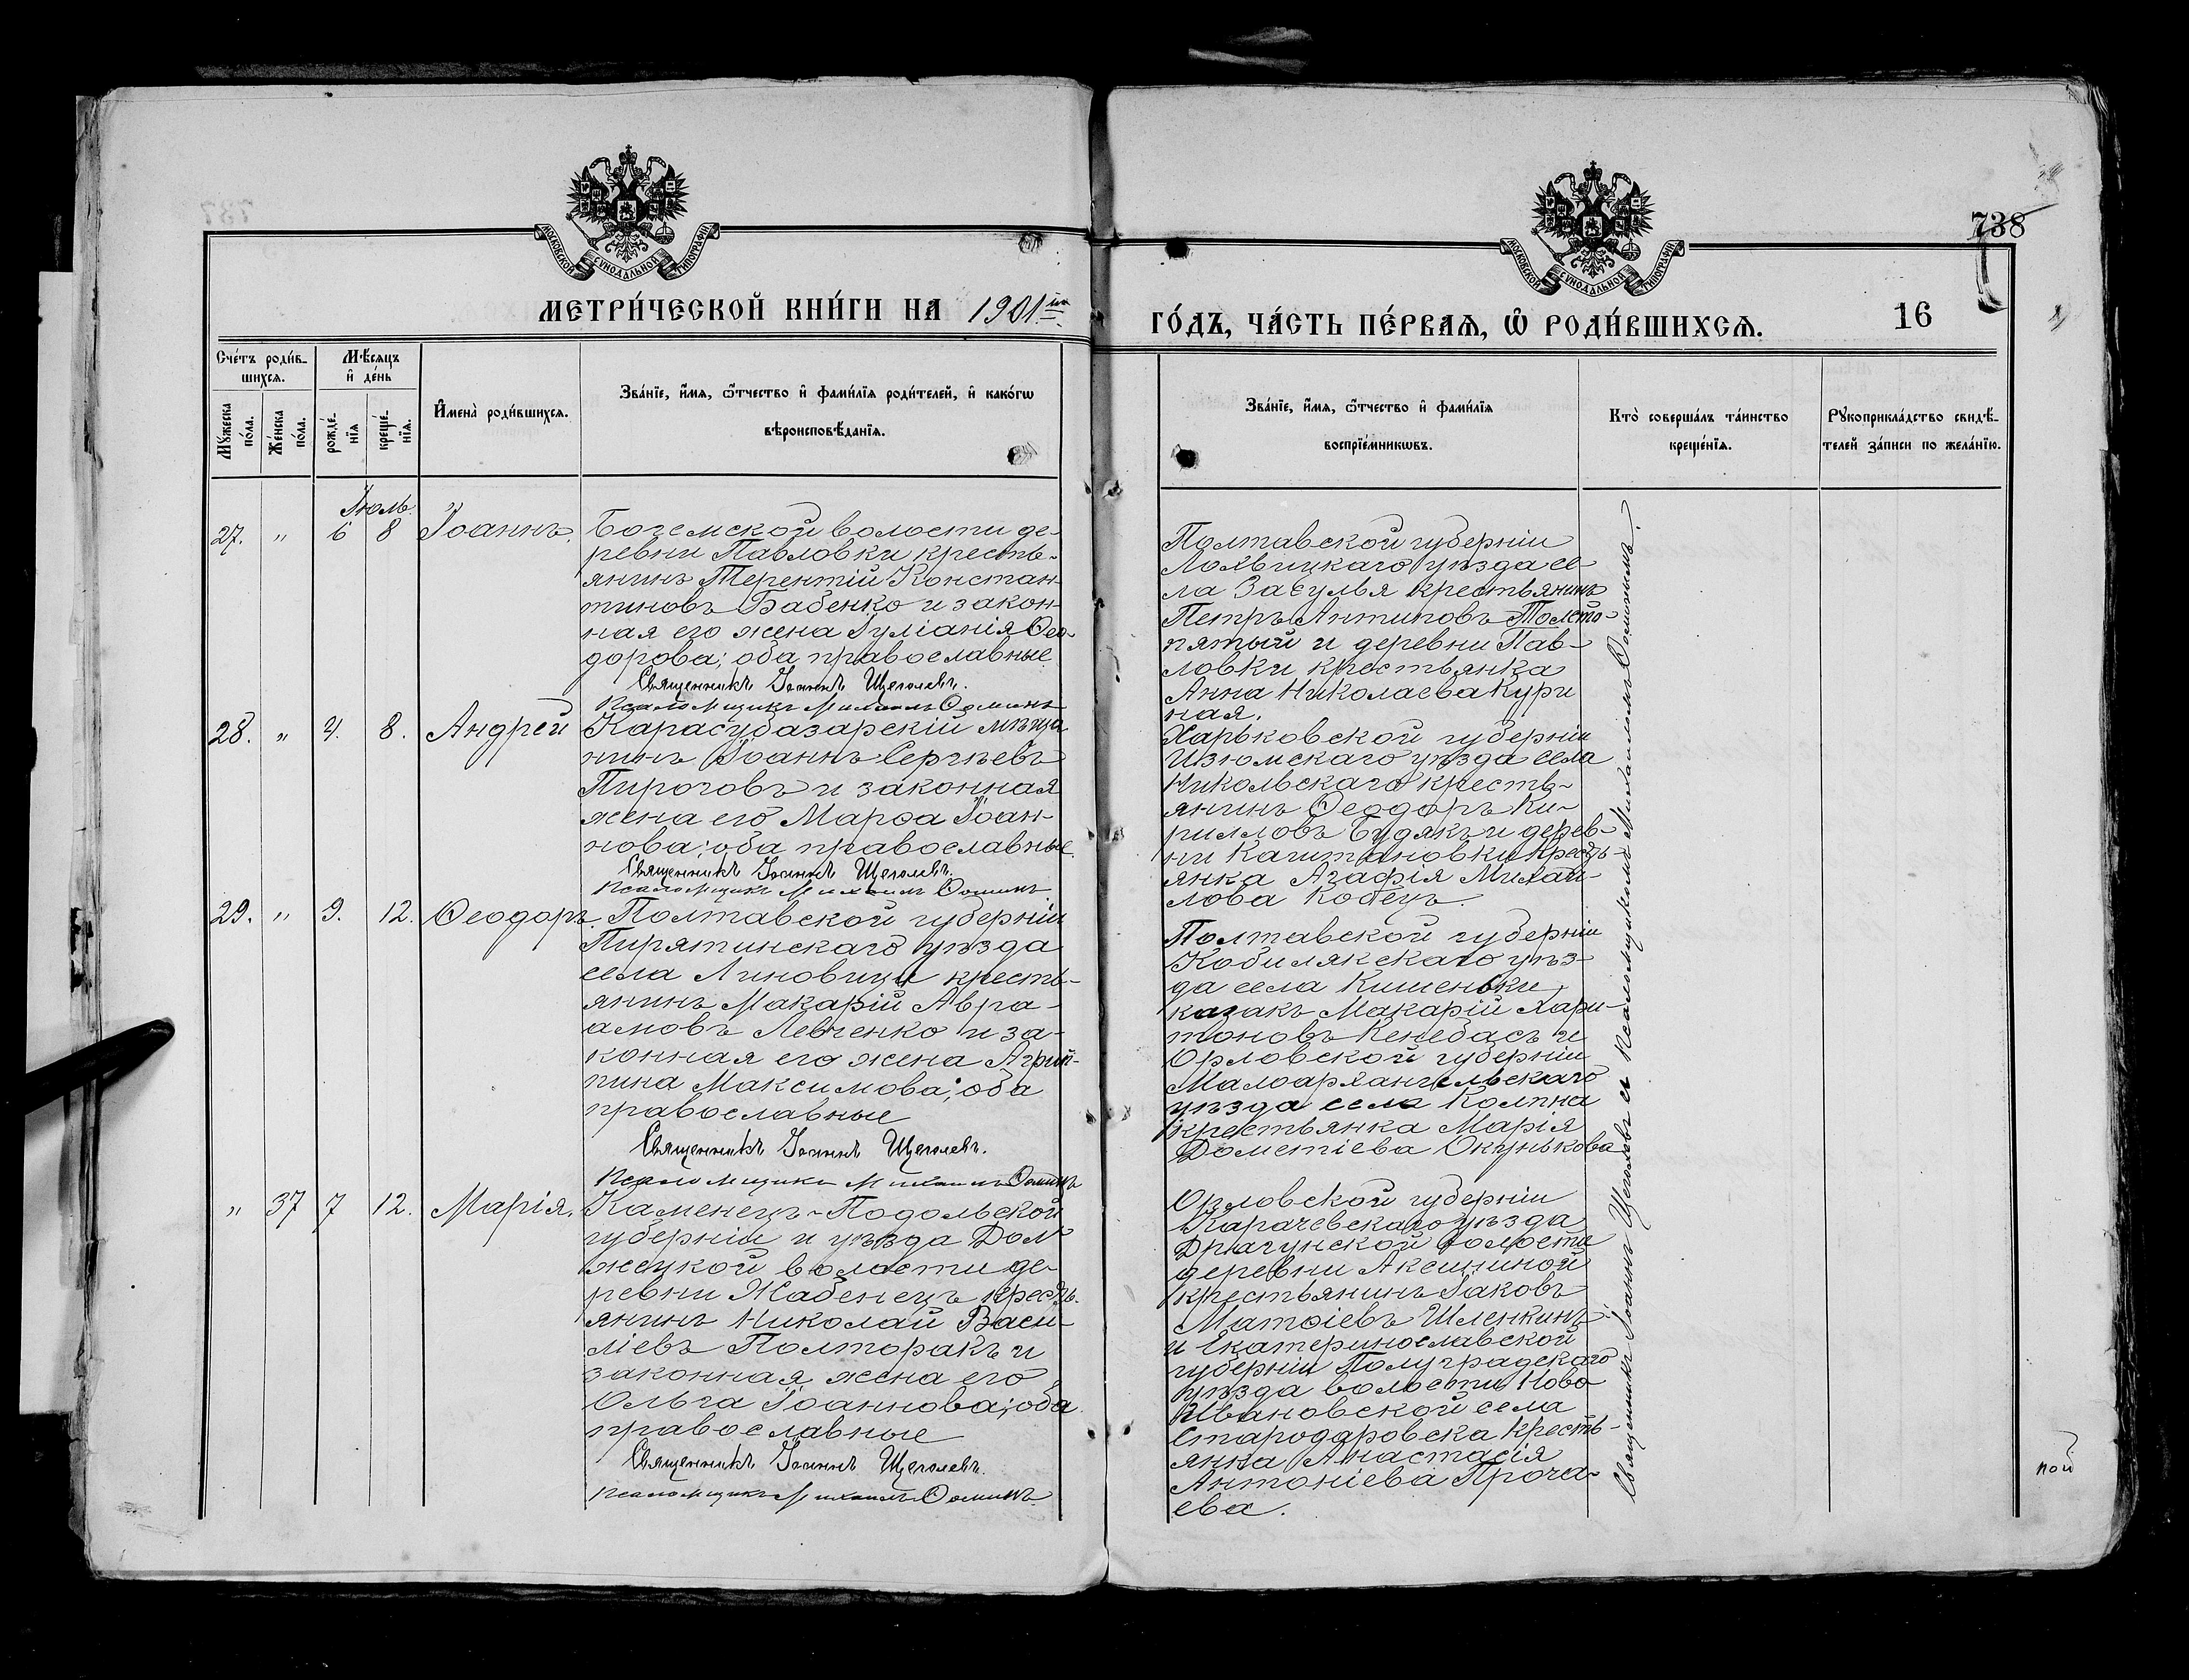 738
МОСКОВСКОЙ СѴНОДАЛЬНОЙ ТИПОГРАФІИ
МОСКОВСКОЙ СѴНОДАЛЬНОЙ ТИПОГРАФІИ
МЕТРИ́ЧЕСКОЙ КНИ́ГИ НА 1901й
ГО́ДЪ, ЧА́СТЬ ПЕ́РВАѦ, Ѽ РОДИ́ВШИХСѦ.
16
Сче́тъ роди́в-
шихсѧ.
Мѣ́сѧцъ
и҆ де́нь
Мꙋ́жеска
по́ла.
Же́нска
по́ла.
рожде́-
нїѧ
креще́-
нїѧ.
И҆мена̀ роди́вшихсѧ.
Зва́нїе, и҆́мѧ, ѻ҆́тчество и҆ фами́лїѧ роди́телей, и҆ како́гѡ
вѣроисповѣ́данїѧ.
Зва́нїе, и҆́мѧ, ѻ҆́тчество и҆ фами́лїѧ
воспрїе́мникѡвъ.
Кто̀ соверша́лъ та́инство
креще́нїѧ.
Рꙋкоприкла́дство свидѣ́-
телей за́писи по жела́нїю.
Іюль.
27. " 6 8 Іоаннъ.
Богемской волости де-
ревни Павловки кресть-
янинъ Терентій Констан-
тиновъ Бабенко и закон-
ная его жена Іуліанія Ѳео-
дорова; оба православные
Священникъ Іоаннъ Щеголевъ.
Псаломщикъ Михаилъ Ѳоминъ
Полтавской губерніи
Лохвицкаго уѣзда се-
ла Засулья крестьянинъ
Петръ Антиповъ Толсто-
пятый и деревни Пав-
ловки крестьянка
Анна Николаева Кури
ная.
28. " 4. 8. Андрей
Карасубазарскій мѣща
нинъ Іоаннъ Сергѣевъ
Пироговъ и законная
жена его Марѳа Іоан-
нова; оба православные.
Священникъ Іоаннъ Щеголевъ.
Псаломщикъ Михаилъ Ѳоминъ
Харьковской губерніи
Изюмскаго уѣзда села
Никольскаго кресть-
янинъ Ѳеодоръ Ки-
рилловъ Будякъ и дерев-
ни Каштановки кресть-
янка Агафія Михаи-
лова Кобецъ.
29. " 9. 12. Ѳеодоръ.
Полтавской губерніи
Пирятинскаго уѣзда
села Линовицы кресть-
янинъ Макарій Авра-
амовъ Левченко и за-
конная его жена Агрип-
пина Максимова; оба
православные
Священникъ Іоаннъ Щеголевъ.
Псаломщикъ Михаилъ Ѳоминъ
Полтавской губерніи
Кобилякскаго уѣз-
да села Кишеньки
казакъ Макарій Хари-
тоновъ Кенебасъ и
Орловской губерніи
Малоархангельскаго
уѣзда села Колпна
крестьянка Марія
Дометіева Окунькова
" 37 7 12. Марія.
Каменецъ-Подольской
губерніи и уѣзда Дол-
жецкой волости де-
ревни Жабенецъ кресть-
янинъ Николай Васи-
ліевъ Полторакъ и
законная жена его
Ольга Іоаннова; оба
православные
Священникъ Іоаннъ Щеголевъ.
Псаломщикъ Михаилъ Ѳоминъ
Орловской губерніи
Карачевскаго уѣзда
Драгунской волости
деревни Аксининой
крестьянинъ Іаковъ
Матѳіевъ Шленкинъ
и Екатеринославской
губерніи Полуградскаго
уѣзда волости Ново
Ивановской села
Стародаровска кресть-
янка Анастасія
Антоніева Проча-
ева.
Священникъ Іоаннъ Щеголевъ съ псаломщикомъ Михаиломъ Ѳоминымъ.